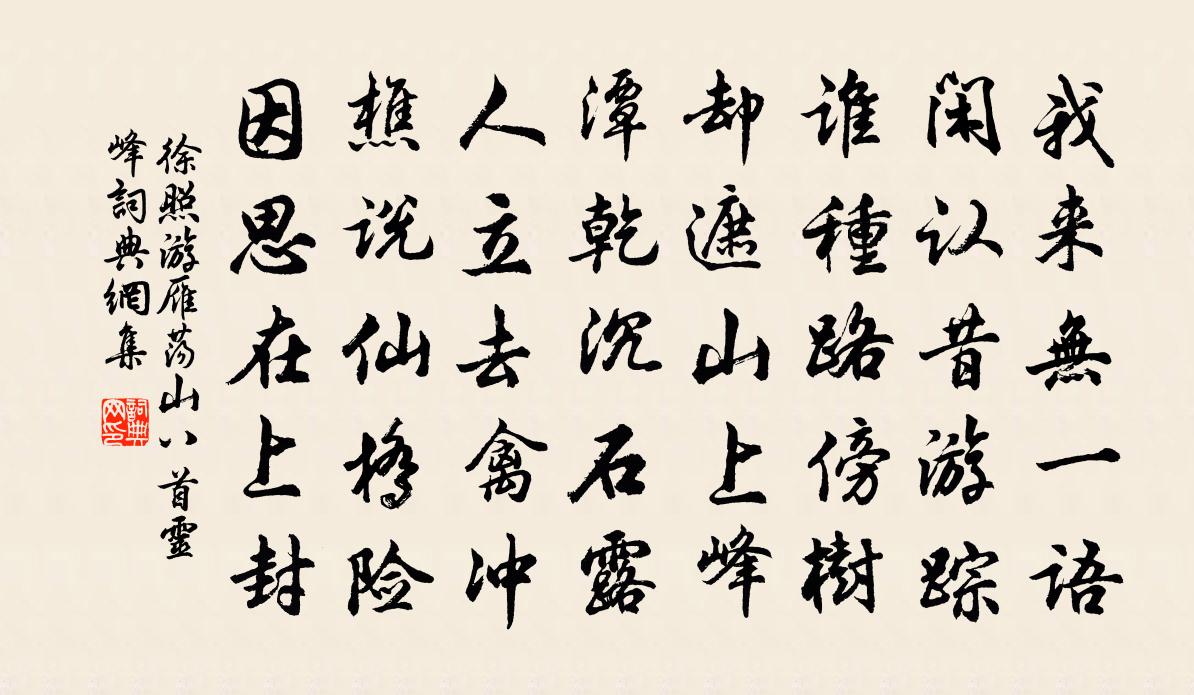 我来無一語
闲认昔游踪
谁種路傍樹
却遮山上峰
潭乾沉石露
人立去禽冲
樵说仙桥险
因思在上封
徐照游雁荡山八首靈
峰詞典網集
詞典
网印